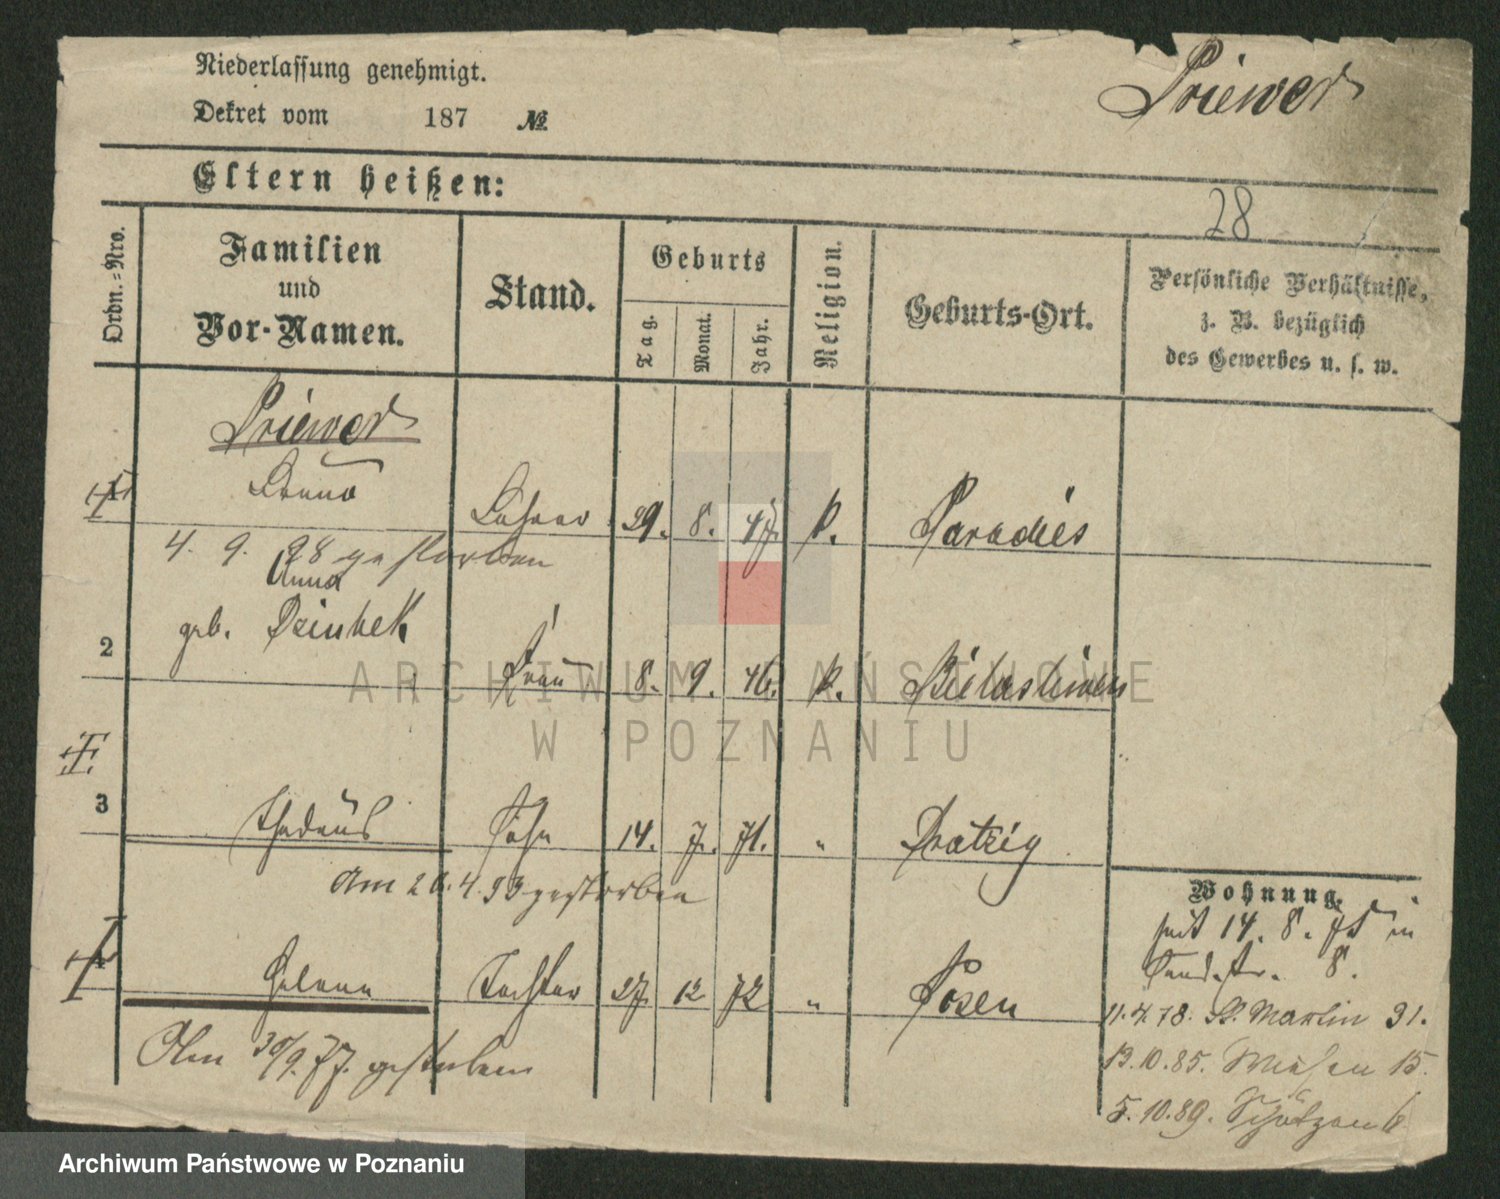 Niederlassung genehmigt.
Priewer
Dekret vom 187 №
Eltern heißen:
28
Ordn.-Nro.
Familien
und
Vor-Namen.
Stand.
Geburts
Tag.
Monat.
Jahr.
Religion.
Geburts-Ort.
Persönliche Verhältnisse,
z. B. bezüglich
des Gewerbes u. s. w.
Priewer
1 Bruno Lehrer 29. 8. 47. k. Paradies
4. 9. 98 gestorben
Anna
2 geb. Frau 8. 9. 46. k.
3 Thadeus Sohn 14. 7. 71. " Dratzig
Am 20. 4. 93 gestorben
Wohnung.
seit 14. 8. 75 in
Helene Tochter 27 12 72 " Posen
Sandstr. 8.
11. 4. 78. St. Martin 31.
Am 30/9. 77. gestorben
13. 10. 85. Wiesen 15.
5. 10. 89. Schützen 6
ARCHIWUM PAŃSTWOWE
W POZNANIU
Archiwum Państwowe w Poznaniu